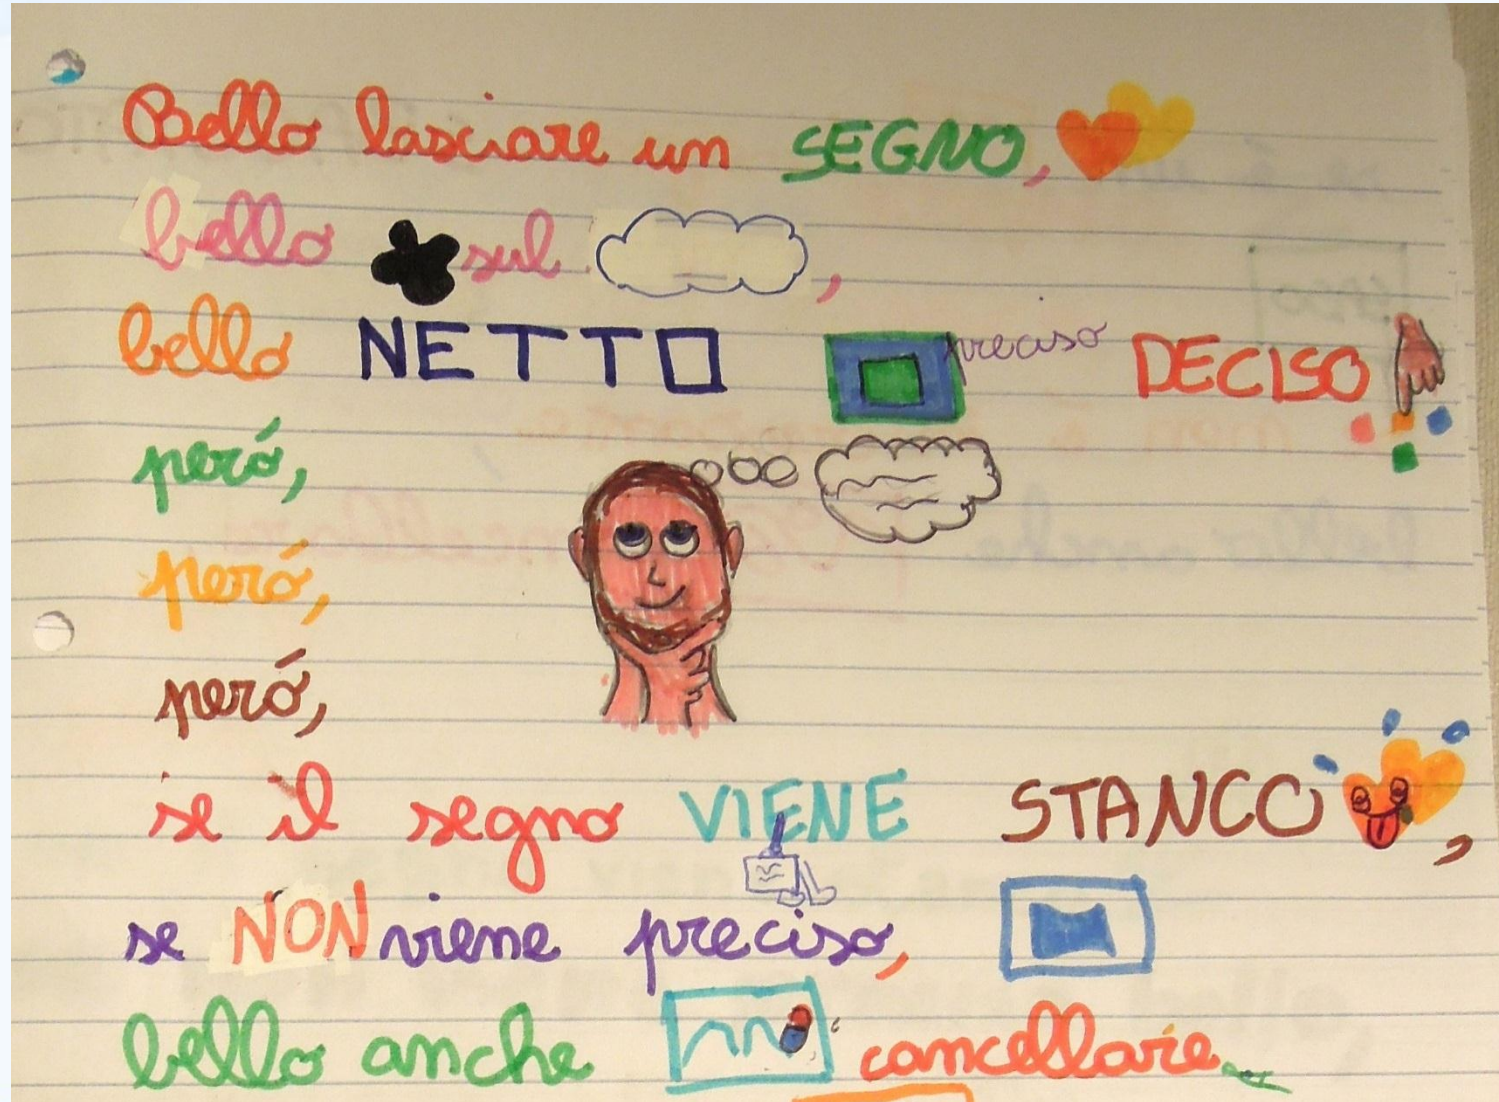 Bello lasciare un SEGNO,
bello sul ,
bello NETTO preciso DECISO
peró,
peró,
peró,
se il segno VIENE STANCO,
se NON viene preciso,
bello anche cancellare